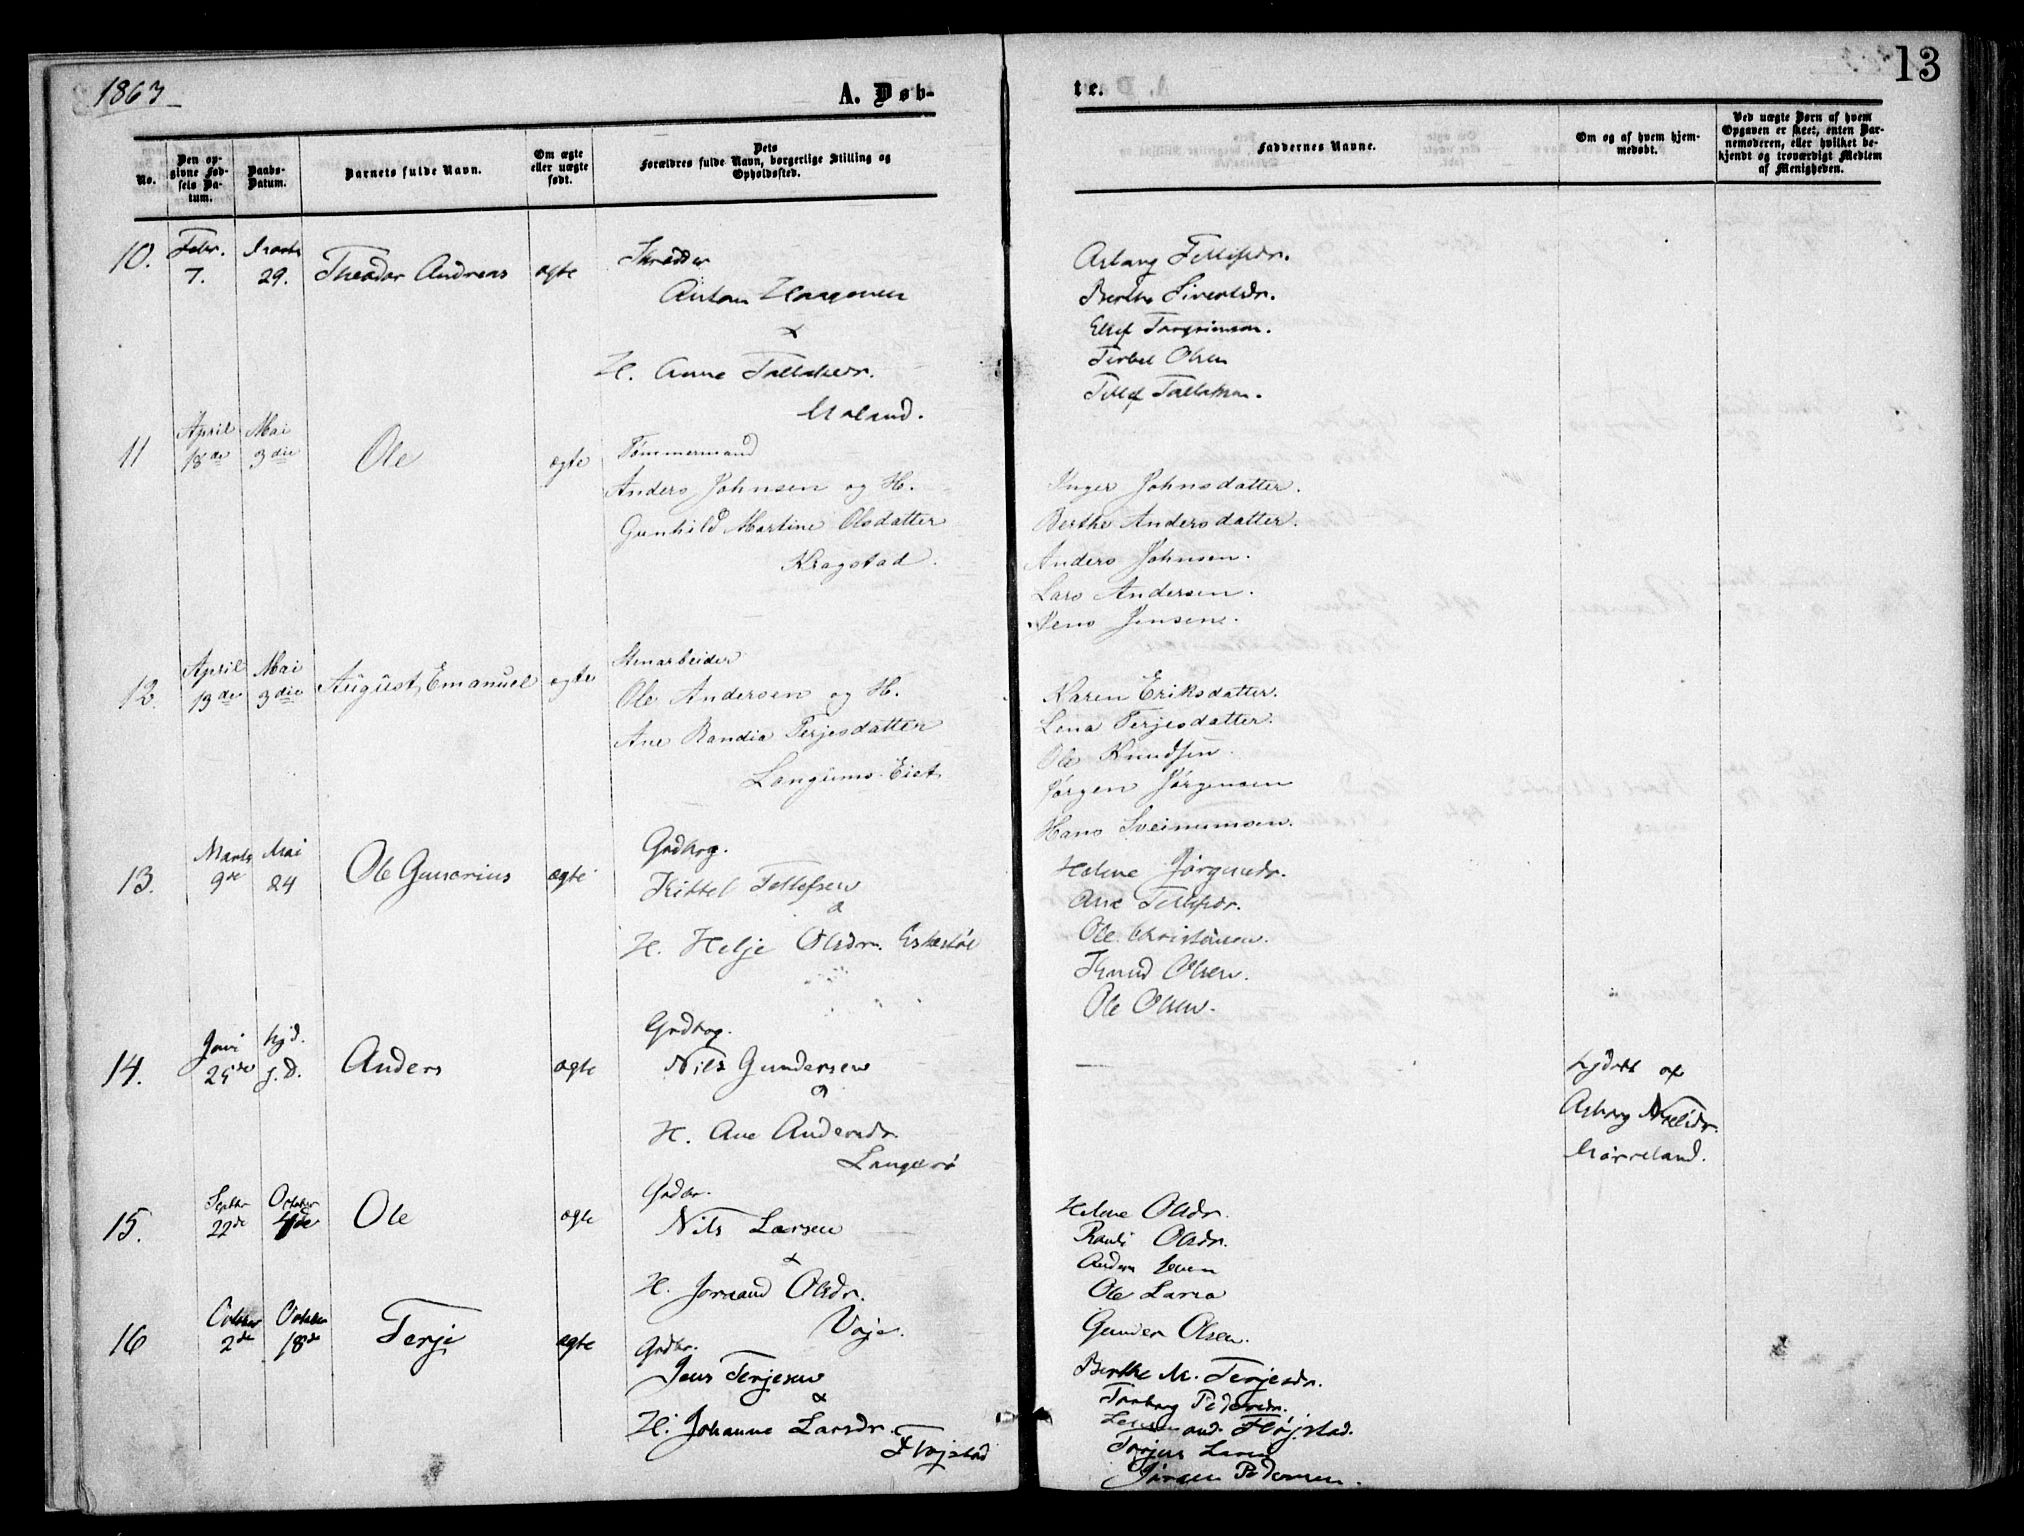 1863
A. Døb-
te.
13
No.
Den op-
givne Fød-
sels Da-
tum.
Daabs-
Datum.
Barnets fulde Navn.
Om ægte
eller uægte
født.
Dets
Forældres fulde Navn, borgerlige Stilling og
Opholdssted.
Faddernes Navne.
Om og af hvem hjem-
medøbt.
Ved uægte Børn af hvem
Opgaven er skeet, enten Bar-
nemoderen, eller hvilket be-
kjendt og troværdigt Medlem
af Menigheden.
10. Febr. 7. Marts 29. Theodor Andreas ægte Skrædder
Anton
&
H. Anne Tallaksdr.
Aslaug Tellefsdr.
Berthe Sivertsdr.
Ellef
Terkel Olsen
Tellef Tallaksen.
11 April 18de Mai 3die Ole ægte Tømmermand
Anders Johnsen og H.
Gunhild Martine Olsdatter
Kragstad.
Inger Johnsdatter.
Berthe Andersdatter.
Anders Johnsen.
Lars Andersen.
Jens Jensen.
12. April 13de Mai 3die August Emanuel ægte Stenarbeider
Ole Andersen og H.
Ane Randia Terjesdatter
Langums Eiet
Karen Eriksdatter.
Lena Terjesdatter.
Ole Knudsen.
Jørgen Jørgensen
Hans Sveinumsen.
13. Marts 9de Mai 24 Ole Gunerius ægte Grdbrg.
Kittel Tellefsen
&
H. Helje Olsdr.
Helene Jørgensdr.
Ane Tellefsdr.
Ole Christensen.
Knud Olsen.
Ole Olsen.
14. Juni 25de hjd. Anders ægte Grdbrg.
Nils Gundersen
&
H. Ane Andersdr.
hjdøbt af
15. Septbr 22de October 4de Ole ægte Grdbr.
Nils Larsen
&
H. Joraand Olsdr.
Voje.
Helene Olsdr.
Randi Olsdr.
Ole Larsen
Gunder Olsen.
16 October 2de October 18de Terje ægte Grdbr.
Jens Terjesen
&
H. Johanne Larsdr.
Fløjstad
Berthe M. Terjesdr.
Pedersdr.
Fløjstad.
Terjes Larsen
Jørgen Pedersen.